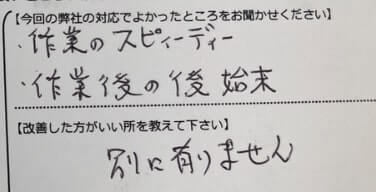 【今回の弊社の対応でよかったところをお聞かせください】
・作業のスピィーディー
・作業後の後始末
【改善した方がいい所を教えて下さい】
別に有りません